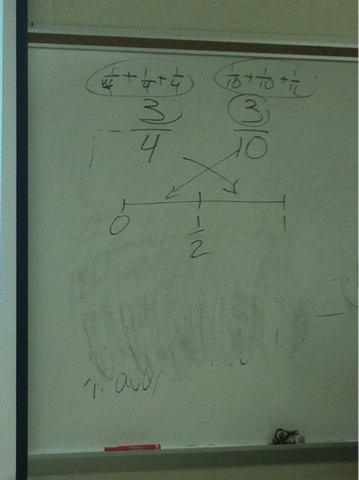 1/4 + 1/4 + 1/4 1/10 + 1/10 + 1/10
3/4 3/10
0 1/2 1